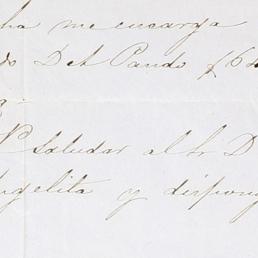 ha me encarga
do D A Pando f 64
a.
P saludar al Sr D
ngelita y dispong